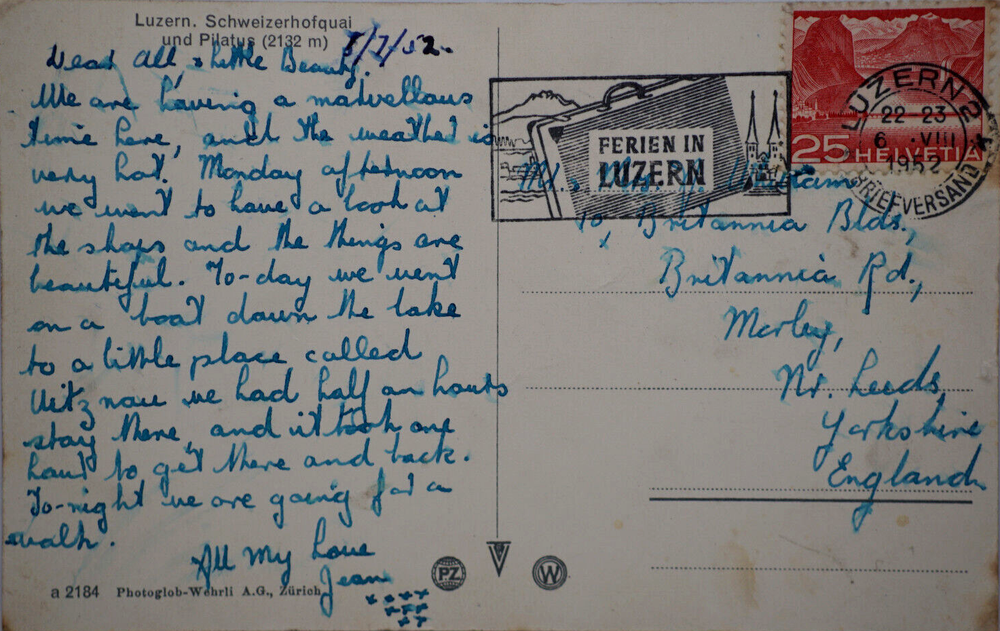 Luzern. Schweizerhofquai
und Pilatus (2132 m)
5/7/52.
Dear All, & Little Beauty,
We are having a marvellous
time here, and the weather is
very hot. Monday afternoon
we went to have a look at
the shops and the things are
beautiful. To-day we went
on a boat down the lake
to a little place called
Vitznau we had half an hours
stay there, and it took one
hour to get there and back.
To-night we are going for a
walk.
All My Love
Jean
x x x x x x x x x
a 2184 Photoglob-Wehrli A.G., Zürich
PZ
W
FERIEN IN
LUZERN
LUZERN 2
22 23
6. VIII
1952
BRIEFVERSAND
25 HELVETIA
Britannia Blds.,
Britannia Rd.,
Morley,
Nr. Leeds,
Yorkshire
England